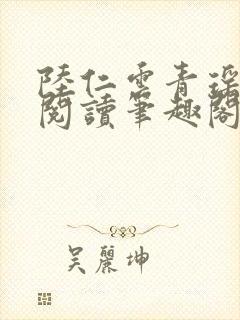 陸仁雲青瑤
閱讀筆趣閣
吳麗坤